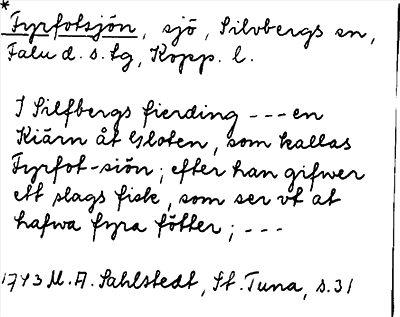 *
Fyrfotsjön, sjö, Silvbergs sn,
Falu d. s. lg, Kopp. l.
I Silfbergs fierding --- en
Kiärn åt Gloten, som kallas
Fyrfot-siön; efter han gifwer
ett slags fisk, som ser vt at
hafwa fyra fötter; ---
1743 M. A. Sahlstedt, St. Tuna, s. 31